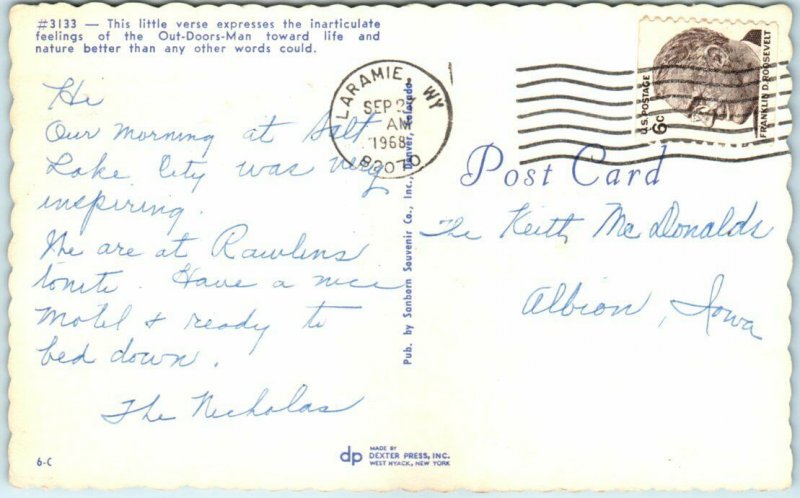 #3133 — This little verse expresses the inarticulate
feelings of the Out-Doors-Man toward life and
nature better than any other words could.
Hi
Our morning at Salt
Lake City was very
inspiring.
We are at Rawlins
tonite. Have a nice
motel & ready to
bed down.
The Nicholas
6-C
LARAMIE, WY
SEP 2
AM
1968
82070
Pub. by Sanborn Souvenir Co., Inc., Denver, Colorado
dp
MADE BY
DEXTER PRESS, INC.
WEST NYACK, NEW YORK
U.S. POSTAGE
6c
FRANKLIN D. ROOSEVELT
Post Card
The Keith McDonalds
Albion, Iowa